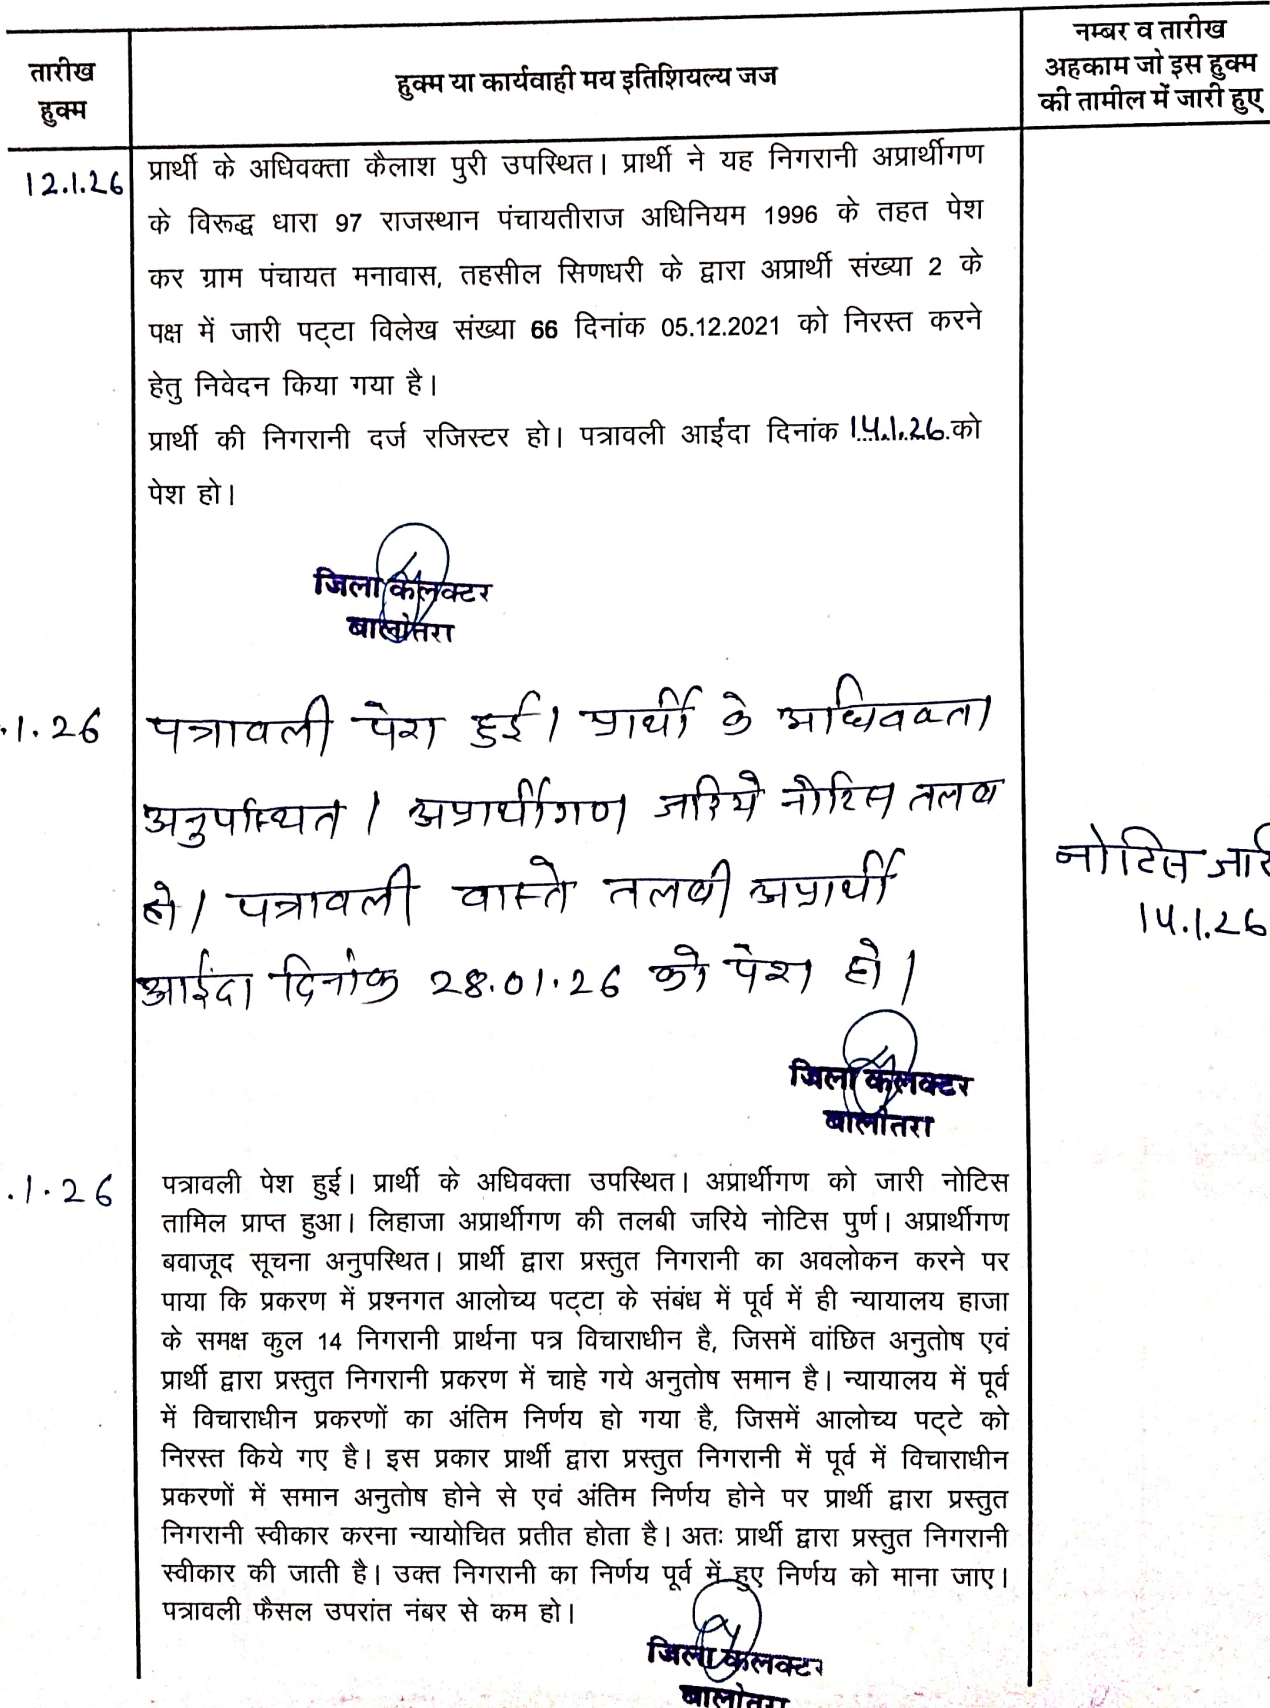 तारीख
हुक्म
हुक्म या कार्यवाही मय इतिशियल्य जज
नम्बर व तारीख
अहकाम जो इस हुक्म
की तामील में जारी हुए
12.1.26
प्रार्थी के अधिवक्ता कैलाश पुरी उपस्थित। प्रार्थी ने यह निगरानी अप्रार्थीगण
के विरूद्ध धारा 97 राजस्थान पंचायतीराज अधिनियम 1996 के तहत पेश
कर ग्राम पंचायत मनावास, तहसील सिणधरी के द्वारा अप्रार्थी संख्या 2 के
पक्ष में जारी पट्टा विलेख संख्या 66 दिनांक 05.12.2021 को निरस्त करने
हेतु निवेदन किया गया है।
प्रार्थी की निगरानी दर्ज रजिस्टर हो। पत्रावली आईंदा दिनांक 14.1.26 को
पेश हो।
जिला कलक्टर
बालोतरा
.1.26
पत्रावली पेश हुई। प्रार्थी के अधिवक्ता
अनुपस्थित। अप्रार्थीगण जरिये नोटिस तलब
हो। पत्रावली वास्ते तलबी अप्रार्थी
आईंदा दिनांक 28.01.26 को पेश हो।
नोटिस जारि
14.1.26
जिला कलक्टर
बालोतरा
.1.26
पत्रावली पेश हुई। प्रार्थी के अधिवक्ता उपस्थित। अप्रार्थीगण को जारी नोटिस
तामिल प्राप्त हुआ। लिहाजा अप्रार्थीगण की तलबी जरिये नोटिस पुर्ण। अप्रार्थीगण
बवाजूद सूचना अनुपस्थित। प्रार्थी द्वारा प्रस्तुत निगरानी का अवलोकन करने पर
पाया कि प्रकरण में प्रश्नगत आलोच्य पट्टा के संबंध में पूर्व में ही न्यायालय हाजा
के समक्ष कुल 14 निगरानी प्रार्थना पत्र विचाराधीन है, जिसमें वांछित अनुतोष एवं
प्रार्थी द्वारा प्रस्तुत निगरानी प्रकरण में चाहे गये अनुतोष समान है। न्यायालय में पूर्व
में विचाराधीन प्रकरणों का अंतिम निर्णय हो गया है, जिसमें आलोच्य पट्टे को
निरस्त किये गए है। इस प्रकार प्रार्थी द्वारा प्रस्तुत निगरानी में पूर्व में विचाराधीन
प्रकरणों में समान अनुतोष होने से एवं अंतिम निर्णय होने पर प्रार्थी द्वारा प्रस्तुत
निगरानी स्वीकार करना न्यायोचित प्रतीत होता है। अतः प्रार्थी द्वारा प्रस्तुत निगरानी
स्वीकार की जाती है। उक्त निगरानी का निर्णय पूर्व में हुए निर्णय को माना जाए।
पत्रावली फैसल उपरांत नंबर से कम हो।
जिला कलक्टर
बालोतरा